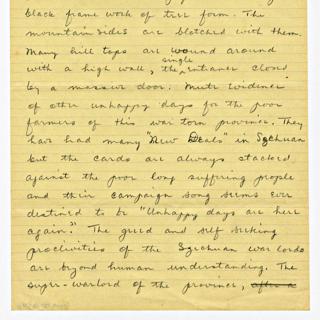 black frame work of tree form. The
mountain sides are blotched with them.
Many hill tops are wound around
single
with a high wall, the entrance closed
by a massive door. Mute evidence
of other unhappy days for the poor
farmers of this war torn province. They
have had many "New Deals" in Szechuan
but the cards are always stacked
against the poor long suffering people
and their campaign song seems ever
destined to be "Unhappy days are here
again." The greed and self seeking
proclivities of the Szechuan war lords
are beyond human understanding. The
super-warlord of the province,